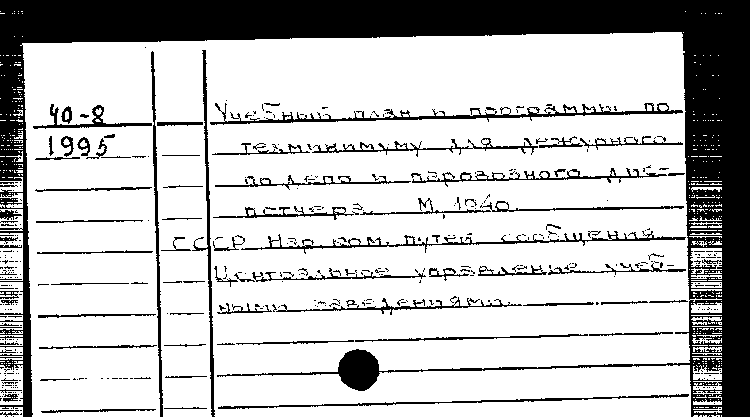 40-8 Учебный план и программы по
1995 техминимуму для дежурного
по депо и паровозного дис-
петчера. М., 1940.
СССР Нар. ком. путей сообщения
Центральное управление учеб-
ными заведениями.